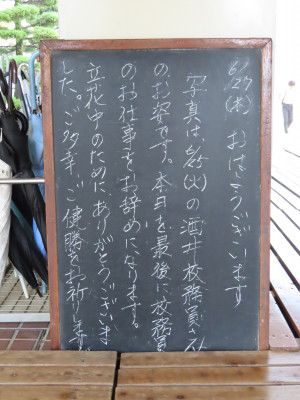 6/27(木) おはようございます
写真は6/25(火)の酒井校務員さん
のお姿です。本日を最後に校務員
のお仕事をお辞めになります。
立花中のために、ありがとうございま
した。ご多幸、ご健勝をお祈りします。